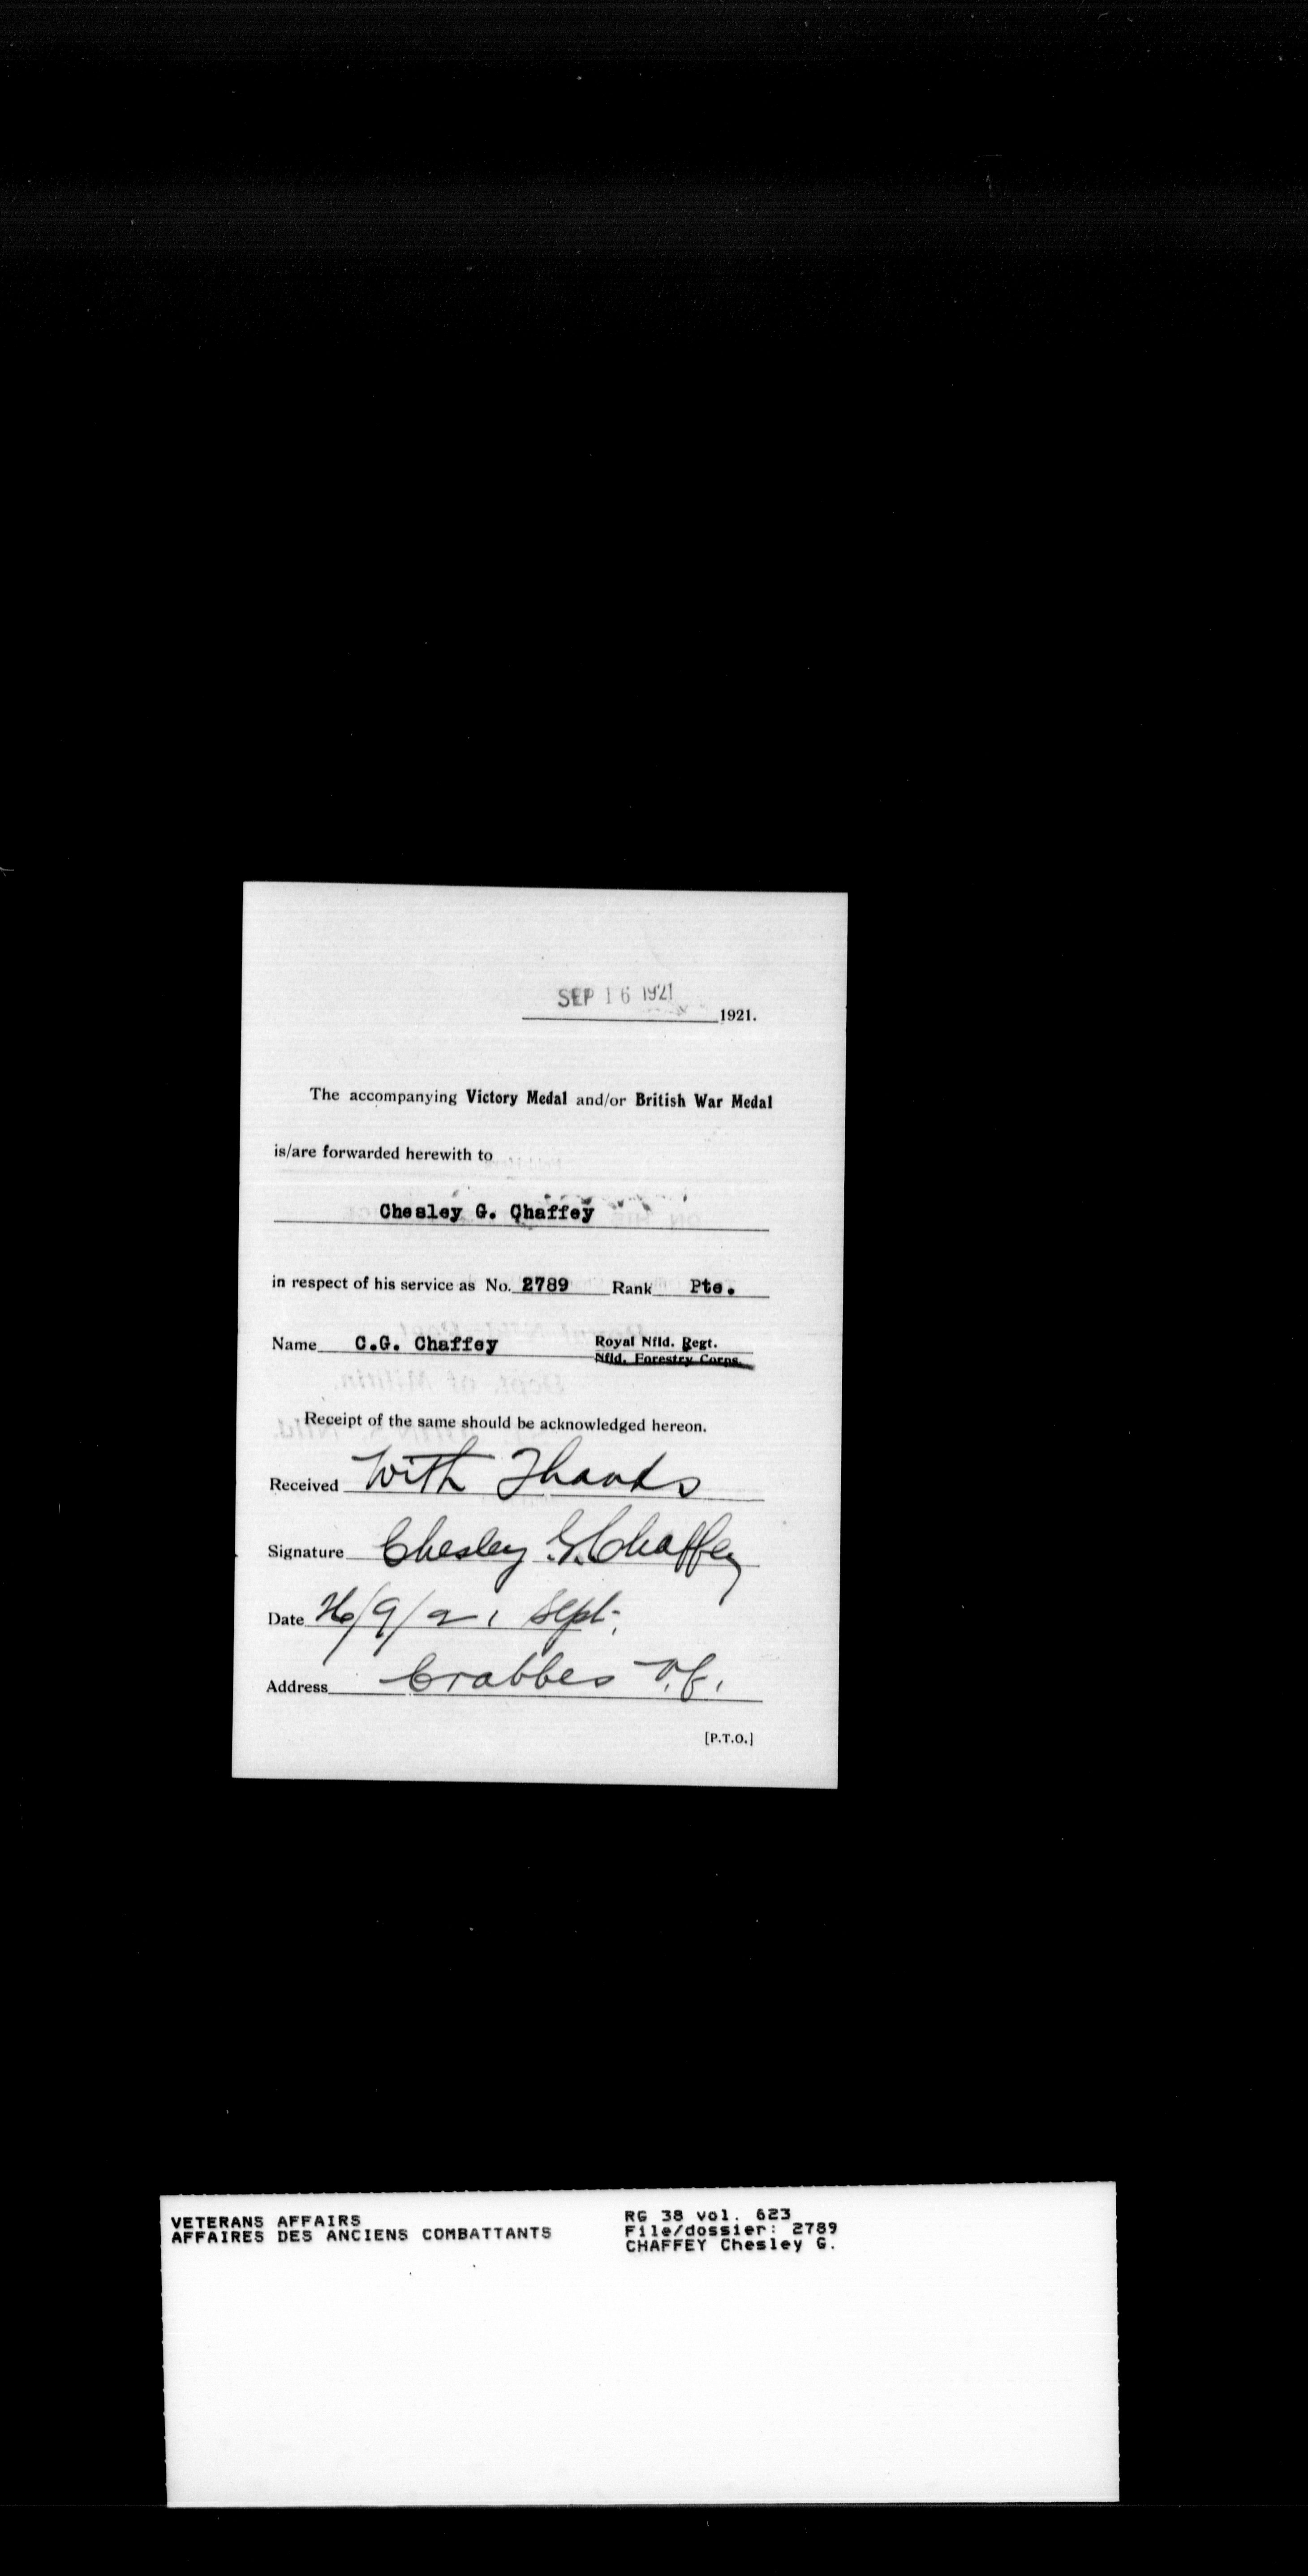 SEP 16 1921
1921.
The accompanying Victory Medal and/or British War Medal
is/are forwarded herewith to
Chesley G. Chaffey
in respect of his service as No. 2789 Rank Pte.
Name C.G. Chaffey Royal Nfld. Regt.
Nfld. Forestry Corps.
Receipt of the same should be acknowledged hereon.
Received With Thanks
Signature Chesley G. Chaffey
Date 26/9/21 Sept.
Address Crabbes N.f.
[P.T.O.]
VETERANS AFFAIRS
AFFAIRES DES ANCIENS COMBATTANTS
RG 38 vol. 623
File/dossier: 2789
CHAFFEY Chesley G.